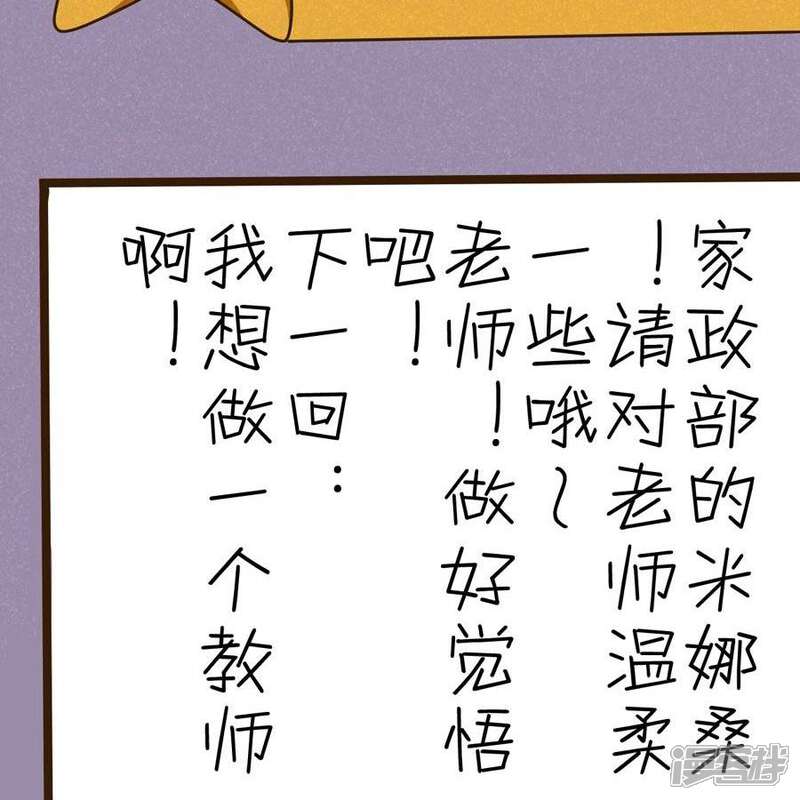 家政部的米娜桑
！请对老师温柔
一些哦~
老师！做好觉悟
吧！
下一回：
我想做一个教师
啊！
漫客栈